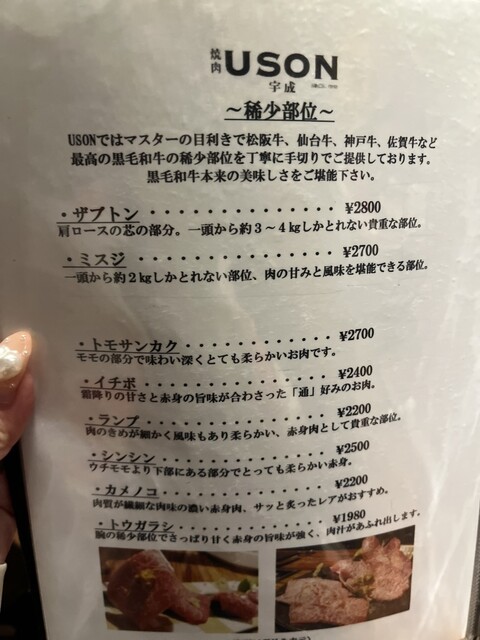 焼肉 USON
宇成
～稀少部位～
USONではマスターの目利きで松阪牛、仙台牛、神戸牛、佐賀牛など
最高の黒毛和牛の稀少部位を丁寧に手切りでご提供しております。
黒毛和牛本来の美味しさをご堪能下さい。
・ザブトン・・・・・・・・・・・・・・¥2800
肩ロースの芯の部分。一頭から約３～４kgしかとれない貴重な部位。
・ミスジ・・・・・・・・・・・・・・・¥2700
一頭から約２kgしかとれない部位、肉の甘みと風味を堪能できる部位。
・トモサンカク・・・・・・・・・・・・¥2700
モモの部分で味わい深くとても柔らかいお肉です。
・イチボ・・・・・・・・・・・・・・・¥2400
霜降りの甘さと赤身の旨味が合わさった「通」好みのお肉。
・ランプ・・・・・・・・・・・・・・・¥2200
肉のきめが細かく風味もあり柔らかい、赤身肉として貴重な部位。
・シンシン・・・・・・・・・・・・・・¥2500
ウチモモより下部にある部分でとっても柔らかい赤身。
・カメノコ・・・・・・・・・・・・・・¥2200
肉質が繊細な肉味の濃い赤身肉、サッと炙ったレアがおすすめ。
・トウガラシ・・・・・・・・・・・・・¥1980
腕の稀少部位でさっぱり甘く赤身の旨味が強く、肉汁があふれ出します。